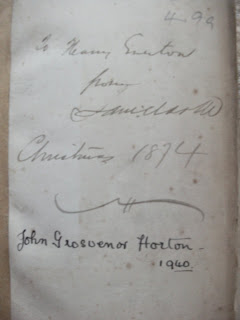 4.99
To Henry Everton
from
Christmas 1874
John Grosvenor Horton
1940